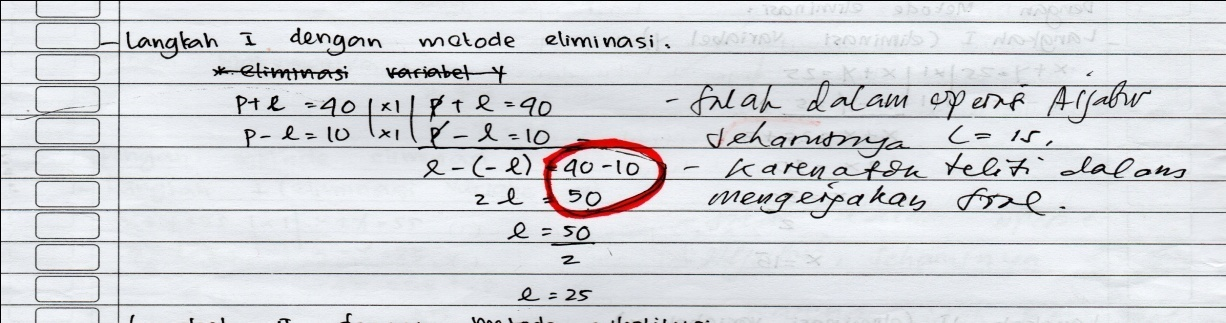 - Langkah I dengan metode eliminasi.
* eliminasi variabel y
P + l = 40 | x1 | p + l = 40
P - l = 10 | x1 | p - l = 10
l - (-l) = 40 - 10
2l = 50
l = 50
2
l = 25
- Salah dalam operasi Aljabar
seharusnya l = 15.
- Karena tdk teliti dalam
mengerjakan soal.